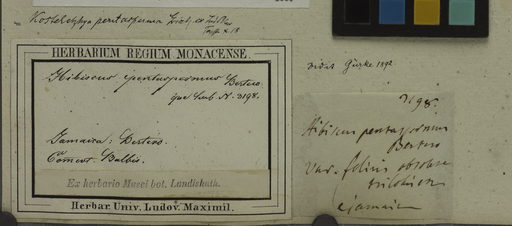 Kosteletzkya pentasperma
HERBARIUM REGIUM MONACENSE.
Hibiscus pentaspermus Bertero
herb. N. 3198.
Jamaica: Bertero.
Comm. Balbis.
Ex herbario Musei bot. Landishuth.
Herbar. Univ. Ludov. Maximil.
vidit Gürke 1892
3198.
Hibiscus pentaspermus
Bertero
Var. foliis obsolete
trilobis
e jamaica